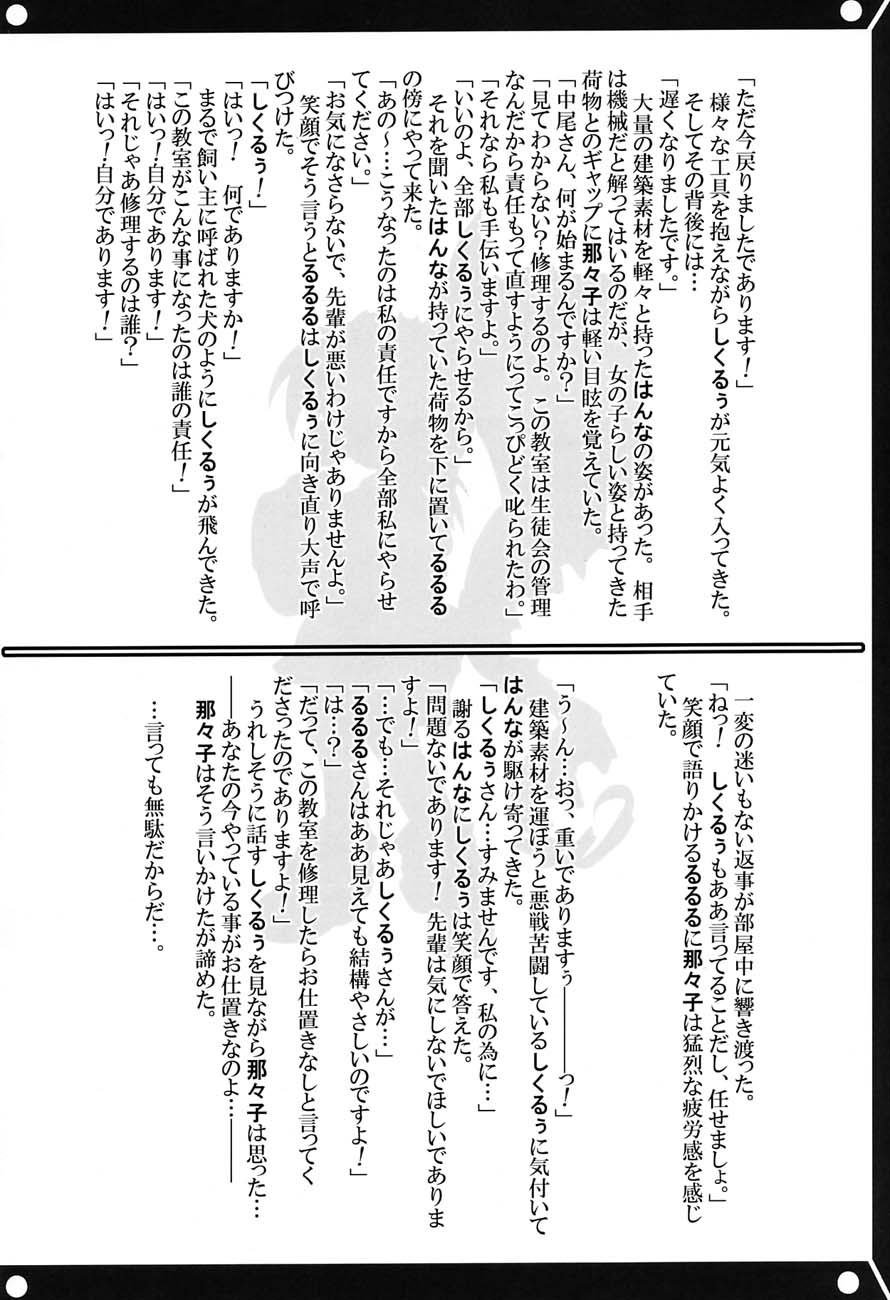 「ただ今戻りましたであります！」
様々な工具を抱えながらしくるぅが元気よく入ってきた。
そしてその背後には…
「遅くなりましたです。」
大量の建築素材を軽々と持ったはんなの姿があった。相手
は機械だと解ってはいるのだが、女の子らしい姿と持ってきた
荷物とのギャップに那々子は軽い目眩を覚えていた。
「中尾さん、何が始まるんですか？」
「見てわからない？修理するのよ。この教室は生徒会の管理
なんだから責任もって直すようにってこっぴどく叱られたわ。」
「それなら私も手伝いますよ。」
「いいのよ、全部しくるぅにやらせるから。」
それを聞いたはんなが持っていた荷物を下に置いてるるる
の傍にやって来た。
「あの～…こうなったのは私の責任ですから全部私にやらせ
てください。」
「お気になさらないで、先輩が悪いわけじゃありませんよ。」
笑顔でそう言うとるるるはしくるぅに向き直り大声で呼
びつけた。
「しくるぅ！」
「はいっ！　何でありますか！」
まるで飼い主に呼ばれた犬のようにしくるぅが飛んできた。
「この教室がこんな事になったのは誰の責任！」
「はいっ！自分であります！」
「それじゃあ修理するのは誰？」
「はいっ！自分であります！」
一変の迷いもない返事が部屋中に響き渡った。
「ねっ！　しくるぅもああ言ってることだし、任せましょ。」
笑顔で語りかけるるるるに那々子は猛烈な疲労感を感じ
ていた。
「う～ん…おっ、重いでありますぅ―――っ！」
建築素材を運ぼうと悪戦苦闘しているしくるぅに気付いて
はんなが駆け寄ってきた。
「しくるぅさん…すみませんです、私の為に…」
謝るはんなにしくるぅは笑顔で答えた。
「問題ないであります！先輩は気にしないでほしいでありま
すよ！」
「…でも…それじゃあしくるぅさんが…」
「るるるさんはああ見えても結構やさしいのですよ！」
「は…？」
「だって、この教室を修理したらお仕置きなしと言ってく
ださったのでありますよ！」
うれしそうに話すしくるぅを見ながら那々子は思った…
――あなたの今やっている事がお仕置きなのよ…――
那々子はそう言いかけたが諦めた。
…言っても無駄だからだ…。